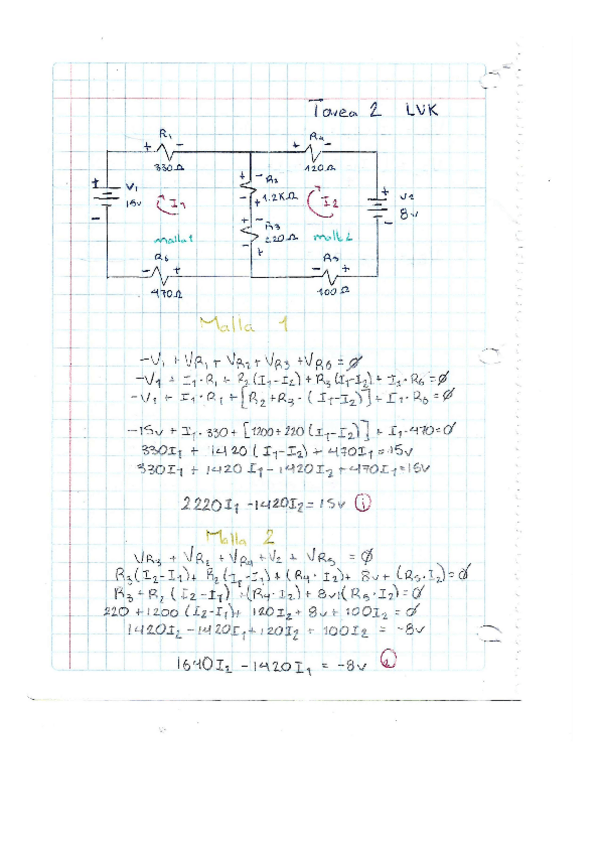 Tarea 2 LVK
R₁ R₄
+ - + -
330Ω 120Ω
+ - R₂
+ V₁ 1.2KΩ I₂ + V₂
15v I₁ 8v
- R₃ -
malla 1 220Ω
R₆ R₅
- + - +
470Ω 100Ω
Malla 1
-V₁ + VR₁ + VR₂ + VR₃ + VR₆ = ∅
-V₁ + I₁·R₁ + R₂(I₁-I₂) + R₃(I₁-I₂) + I₁·R₆ = ∅
-V₁ + I₁·R₁ + [R₂+R₃·(I₁-I₂)] + I₁·R₆ = ∅
-15v + I₁·330 + [1200+220(I₁-I₂)] + I₁·470=0
330I₁ + 1420(I₁-I₂) + 470I₁ = 15v
330I₁ + 1420I₁ - 1420I₂ + 470I₁ = 15v
2220I₁ - 1420I₂ = 15v ①
Malla 2
VR₃ + VR₂ + VR₄ + V₂ + VR₅ = ∅
R₃(I₂-I₁) + R₂(I₂-I₁) + (R₄·I₂) + 8v + (R₅·I₂) = ∅
R₃+R₂(I₂-I₁) + (R₄·I₂) + 8v + (R₅·I₂) = ∅
220 + 1200(I₂-I₁) + 120I₂ + 8v + 100I₂ = ∅
1420I₂ - 1420I₁ + 120I₂ + 100I₂ = -8v
1640I₂ - 1420I₁ = -8v ②